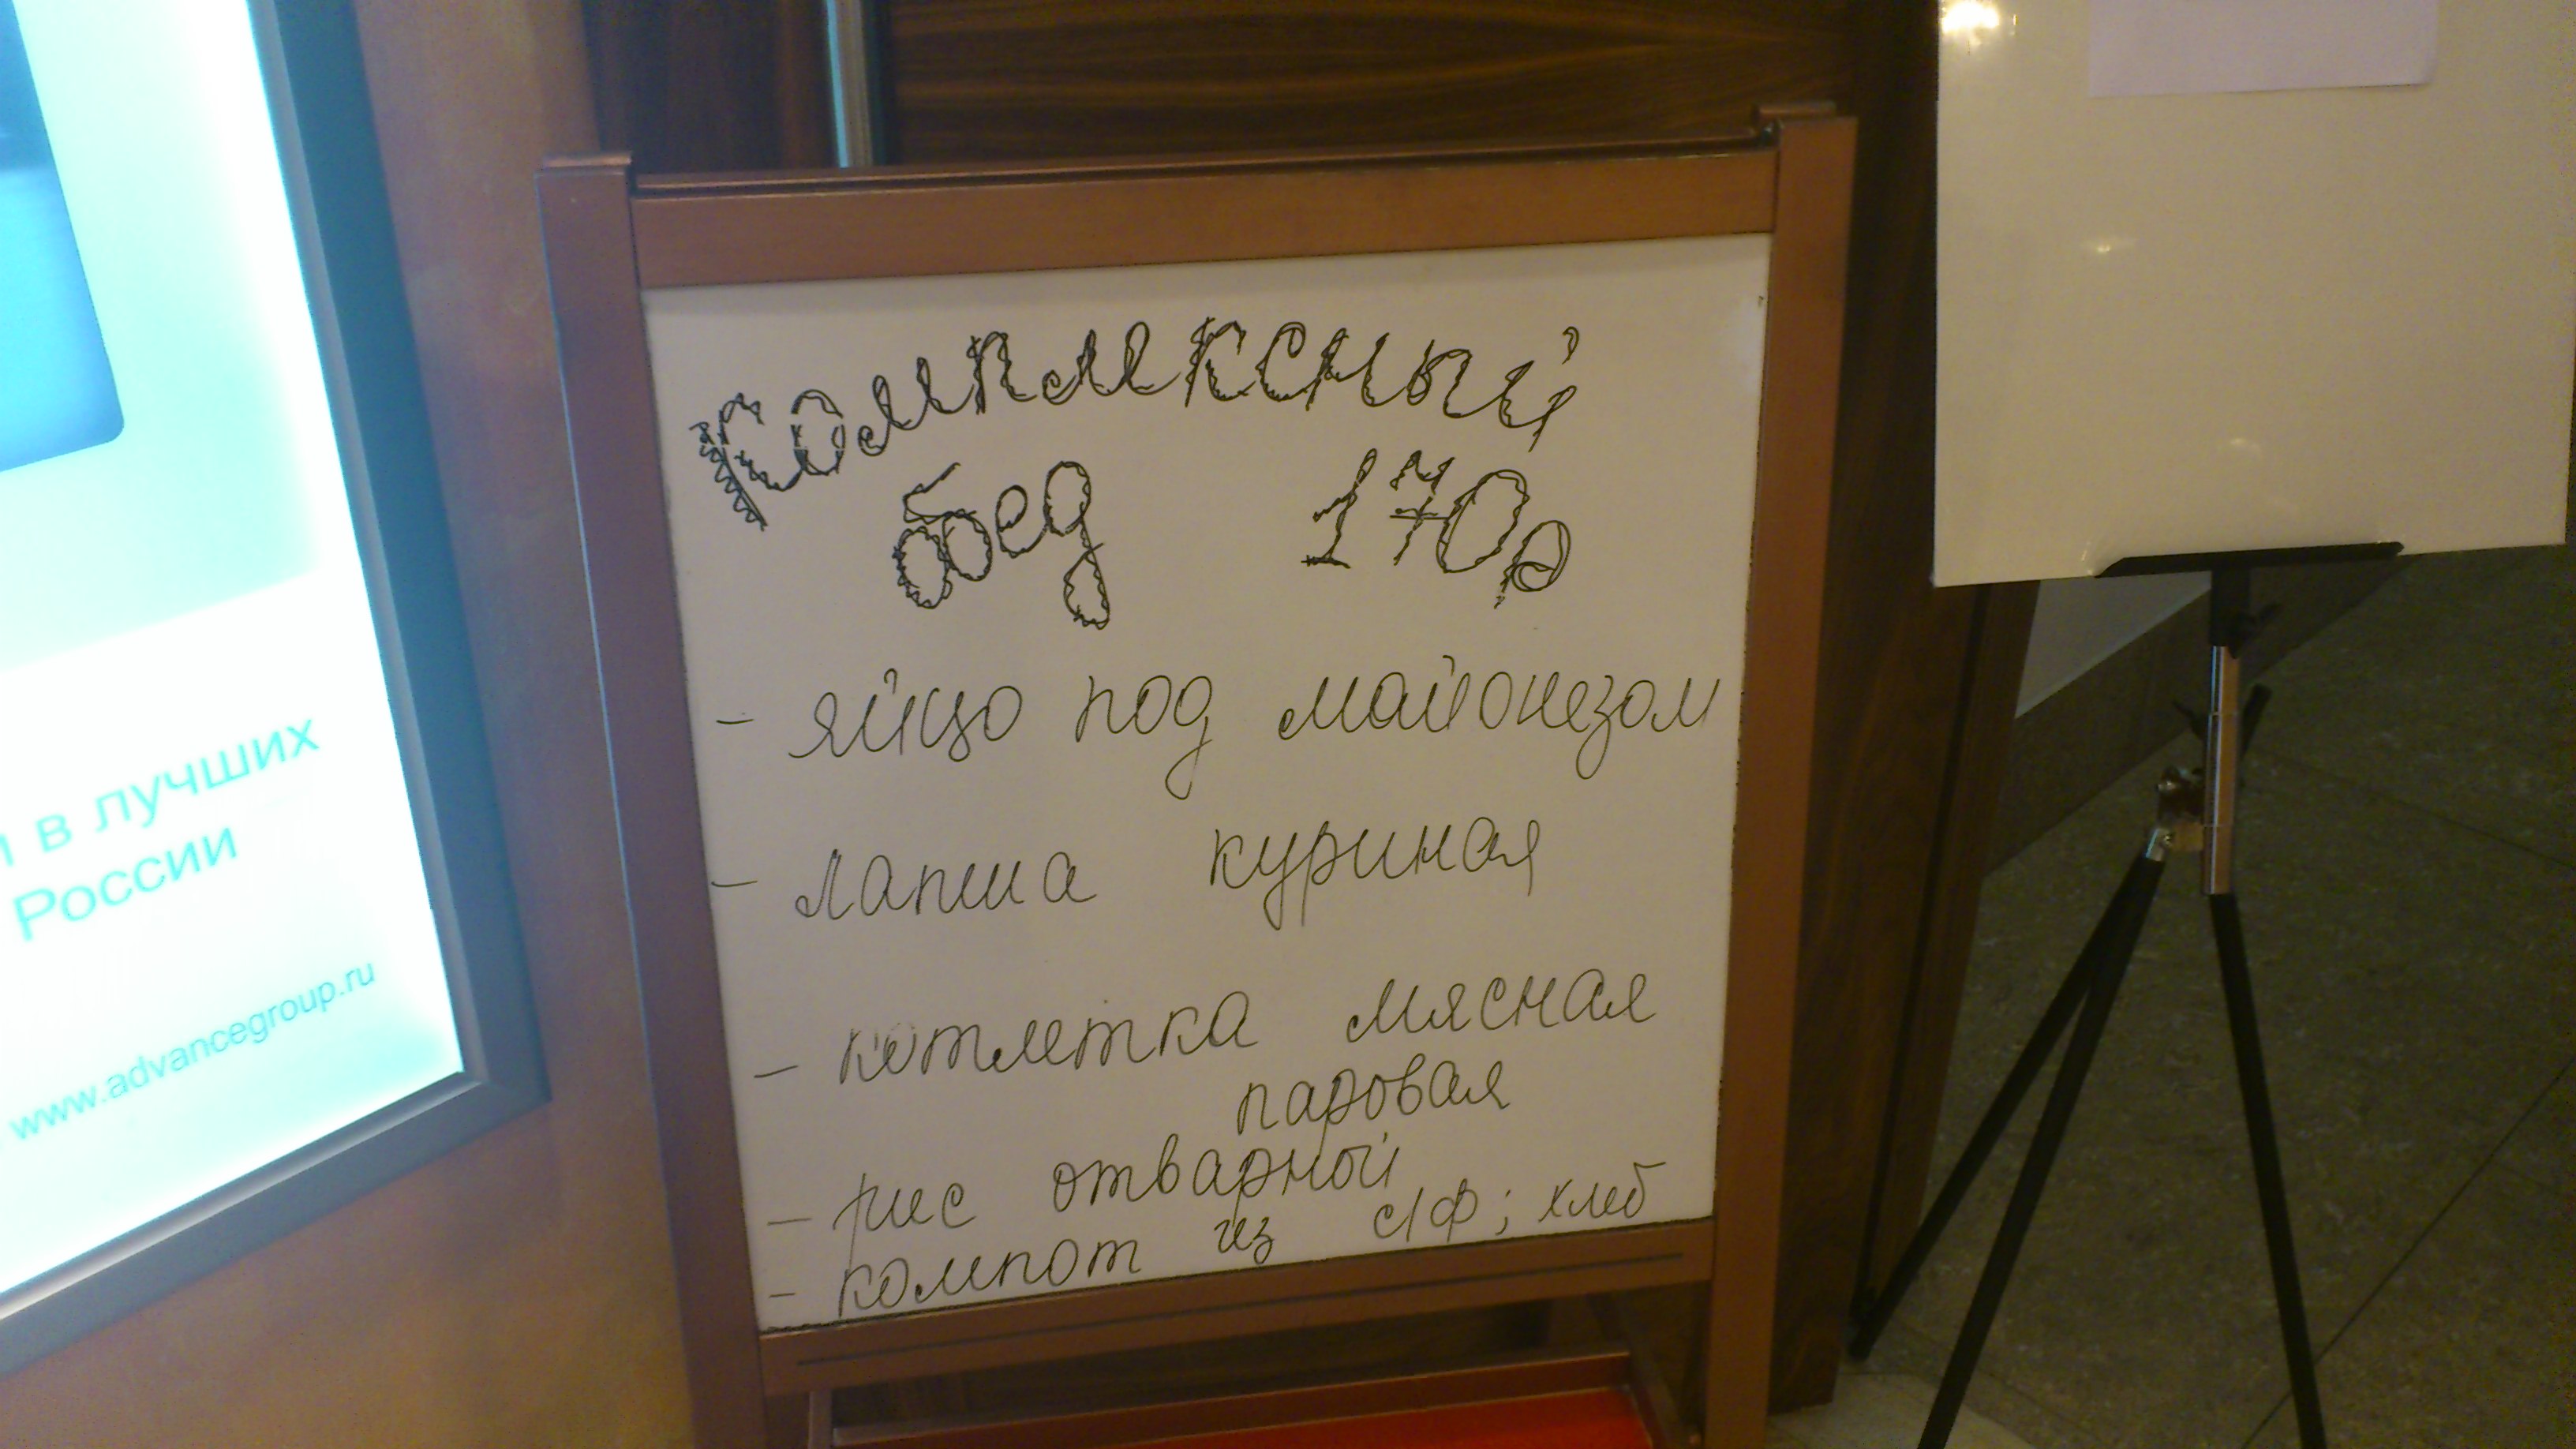 Комплексный
обед 170р
- яйцо под майонезом
- лапша куриная
- котлетка мясная
паровая
- рис отварной
- компот из с/ф; хлеб
и в лучших
России
www.advancegroup.ru